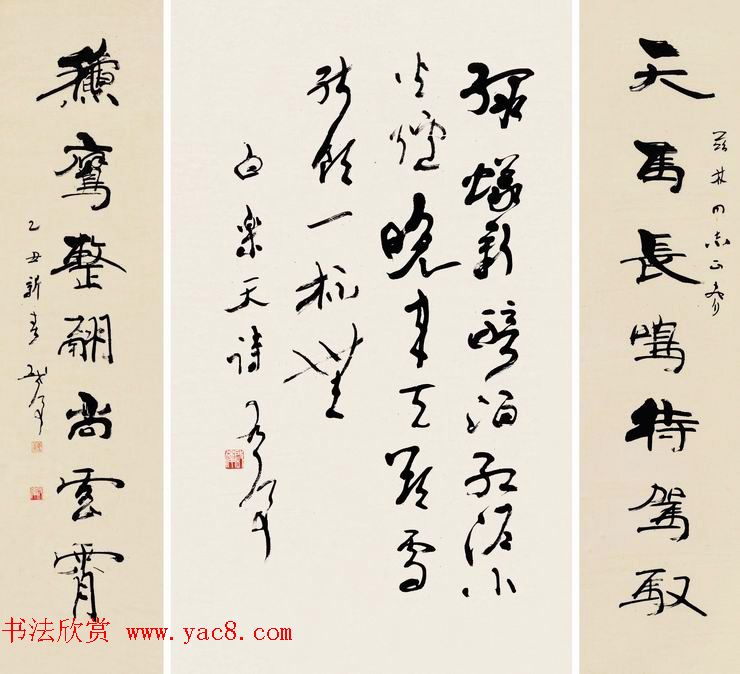 天馬長鳴待駕馭
林同志正
綠蟻新醅酒紅泥小
火爐晚來天欲雪
能飲一杯無
白樂天詩
穐鷹整翮尚雲霄
乙丑新春
书法欣赏 www.yac8.com